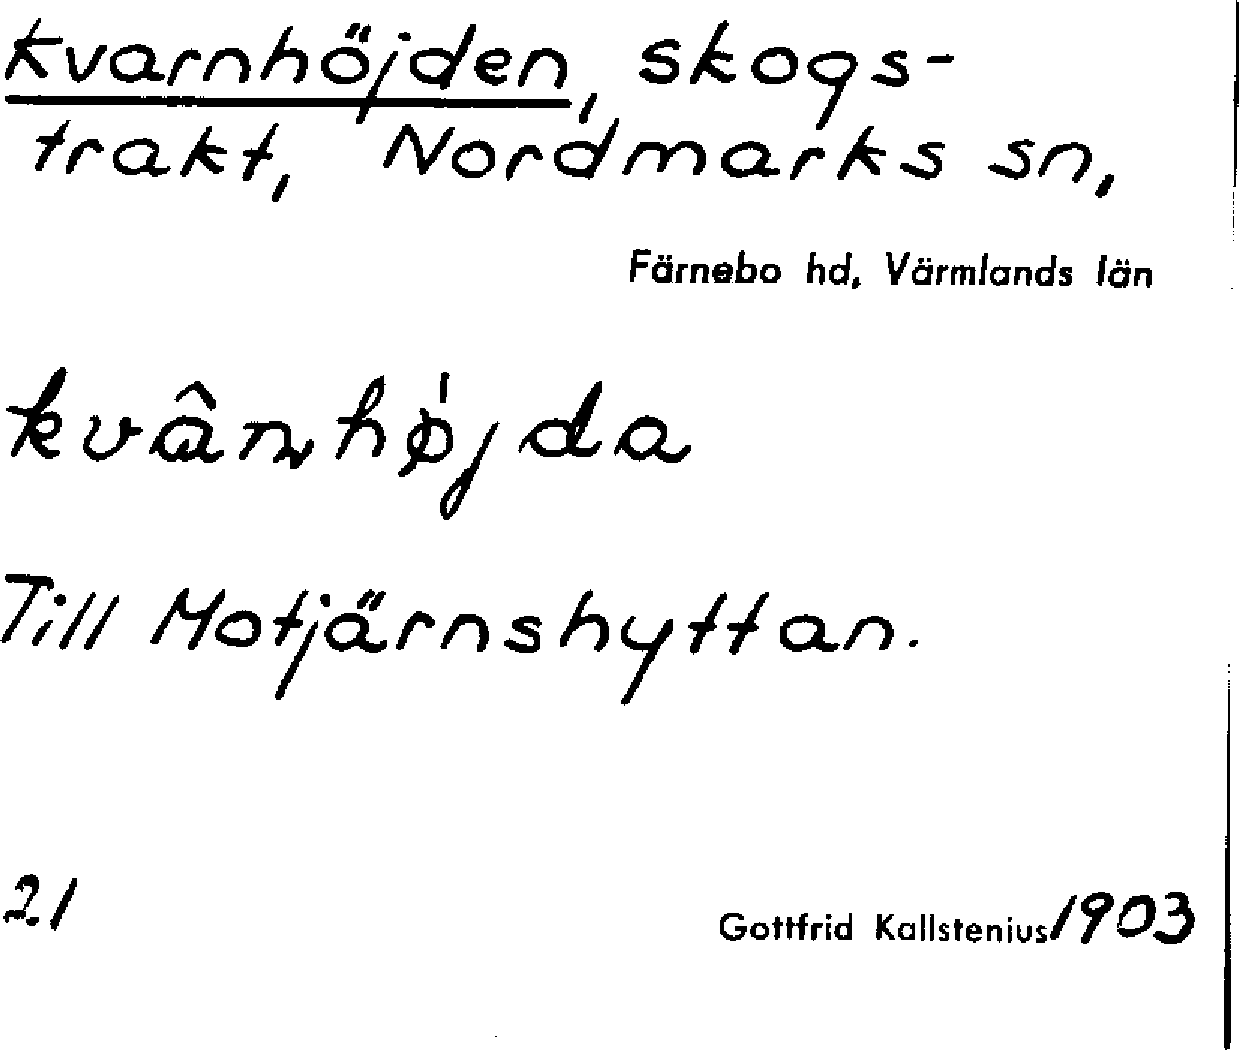 Kvarnhöjden, skogs-
trakt, Nordmarks sn,
Färnebo hd, Värmlands län
kvânhø̀jda
Till Motjärnshyttan.
21
Gottfrid Kallstenius 1903